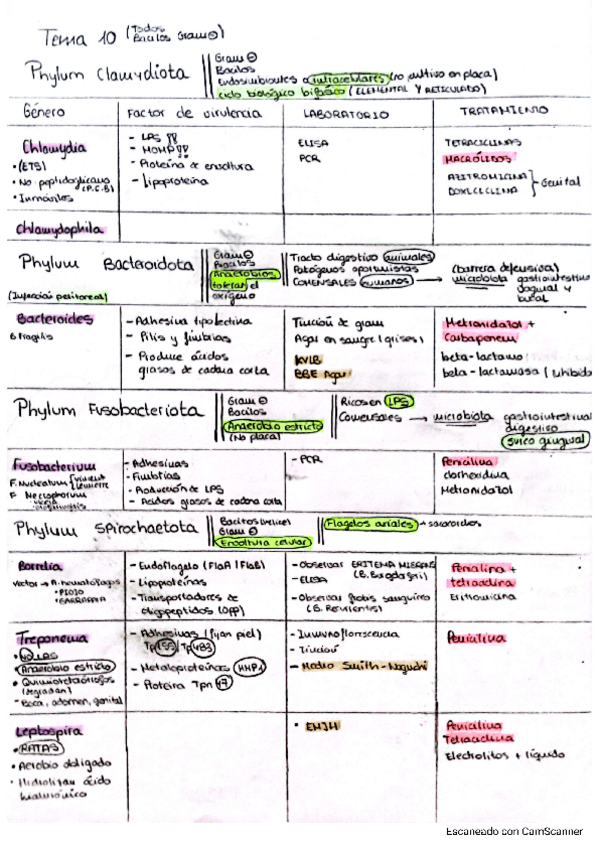 Tema 10 (Todos
Bacilos Gram⊖)
Phylum Clamydiota
Gram ⊖
Bacilos
Endosimbiontes o intracelulares (no cultivo en placa)
ciclo biológico bifásico (ELEMENTAL Y RETICULADO)
Género
Factor de virulencia
LABORATORIO
TRATAMIENTO
Chlamydia
• (ETS)
• No peptidoglicano
(P.C.B)
• Inmóviles
- LPS
- MOMP
- Proteína de envoltura
- Lipoproteína
ELISA
PCR
TETRACICLINAS
MACRÓLIDOS
AZITROMICINA
DOXICICLINA
Genital
Chlamydophila
Phylum Bacteroidota
Gram ⊖
Bacilos
Anaerobios
toleran el
oxígeno
Tracto digestivo animales
Patógenos oportunistas
COMENSALES humanos →
(barrera defensiva)
microbiota gastrointestino
vaginal y
bucal
(Infección peritoneal)
Bacteroides
B. fragilis
- Adhesina tipo lectina
- Pilis y fimbrias
- Produce ácidos
grasos de cadena corta
Tinción de gram
Agar en sangre (grises)
KVLB
BBE Agar
Metronidazol +
Carbapenem
beta-lactamo
beta-lactamasa (inhibido
Phylum Fusobacteriota
Gram ⊖
Bacilos
Anaerobio estricto
(No placa)
Ricos en LPS
Comensales → microbiota gastrointestinal
digestivo
surco gingival
Fusobacterium
F. Nucleatum
F. Necrophorum
- Adhesinas
- Fimbrias
- Producción de LPS
- Ácidos grasos de cadena corta
- PCR
Penicilina
clorhexidina
Metronidazol
Phylum Spirochaetota
Bacilos (hélice)
Gram ⊖
Envoltura celular
Flagelos axiales → sacaroideos
Borrelia
Vector → A. hematófagos
• PIOJO
• GARRAPATA
- Endoflagelo (FlaA/FlaB)
- Lipoproteínas
- Transportadores de
oligopéptidos (Opp)
- Observar ERITEMA MIGRANS
(B. Burgdorferi)
- ELISA
- Observar frotis sanguíneo
(B. Recurrentis)
Penicilina +
tetraciclina
Eritromicina
Treponema
Anaerobio estricto
• Quimioheterótrofos
(degradan)
- Boca, abdomen, genital
- Adhesinas (fijan piel)
Tp 155 / Tp 483
- Metaloproteínas MMP1
- Proteína Tpn 47
- Inmunofluorescencia
- Tinción
- Medio Smith-Noguchi
Penicilina
Leptospira
• RATAS
• Aerobio obligado
• Hidrolizan ácido
hialurónico
• EMJH
Penicilina
Tetraciclina
Electrolitos + líquido
Escaneado con CamScanner